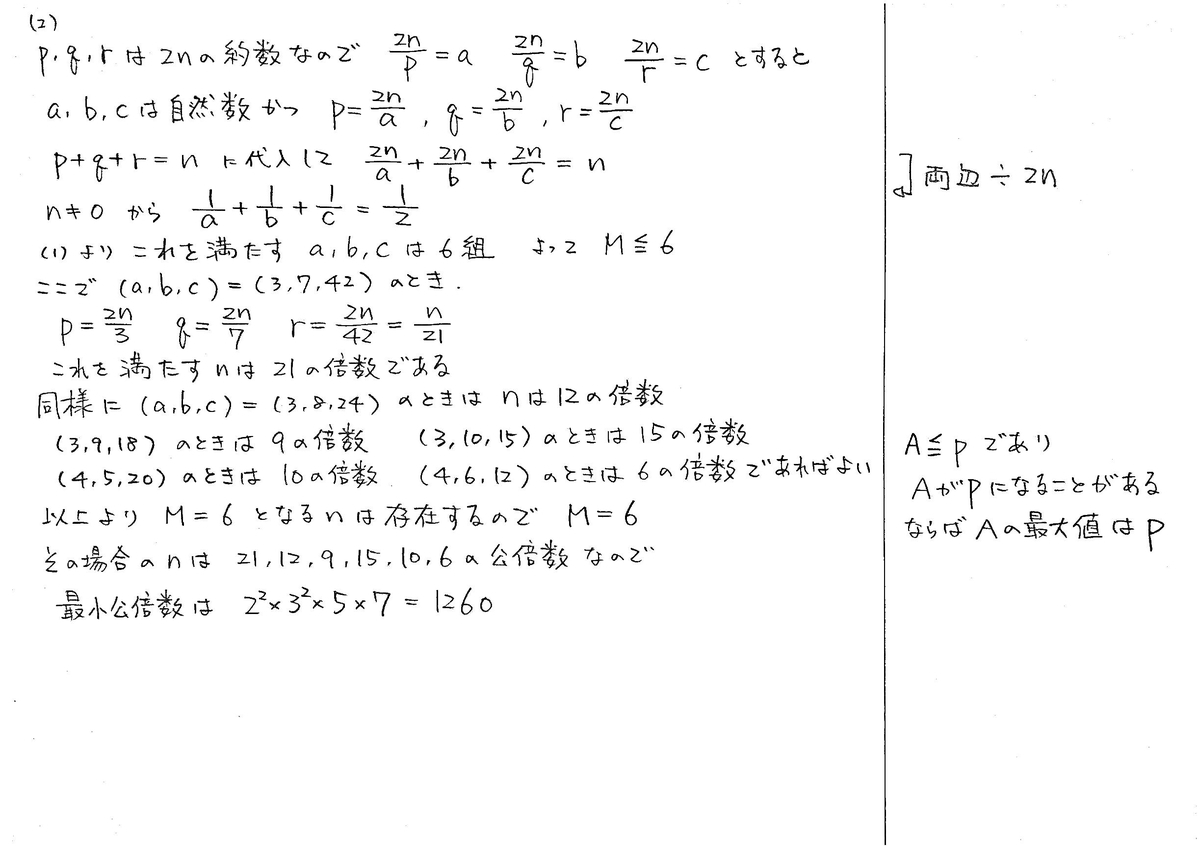 (2)
p, q, r は 2n の約数なので 2n/p = a 2n/q = b 2n/r = c とすると
a, b, c は自然数かつ p = 2n/a , q = 2n/b , r = 2n/c
p+q+r=n に代入して 2n/a + 2n/b + 2n/c = n
n≠0 から 1/a + 1/b + 1/c = 1/2
(1) より これを満たす a, b, c は 6組 よって M≦6
ここで (a, b, c) = (3, 7, 42) のとき.
p = 2n/3 q = 2n/7 r = 2n/42 = n/21
これを満たす n は 21 の倍数である
同様に (a, b, c) = (3, 8, 24) のときは n は 12 の倍数
(3, 9, 18) のときは 9 の倍数 (3, 10, 15) のときは 15 の倍数
(4, 5, 20) のときは 10 の倍数 (4, 6, 12) のときは 6 の倍数であればよい
以上より M=6 となる n は存在するので M=6
その場合の n は 21, 12, 9, 15, 10, 6 の公倍数なので
最小公倍数は 2²×3²×5×7 = 1260
両辺÷2n
A≦p であり
A が p になることがある
ならば A の最大値は p